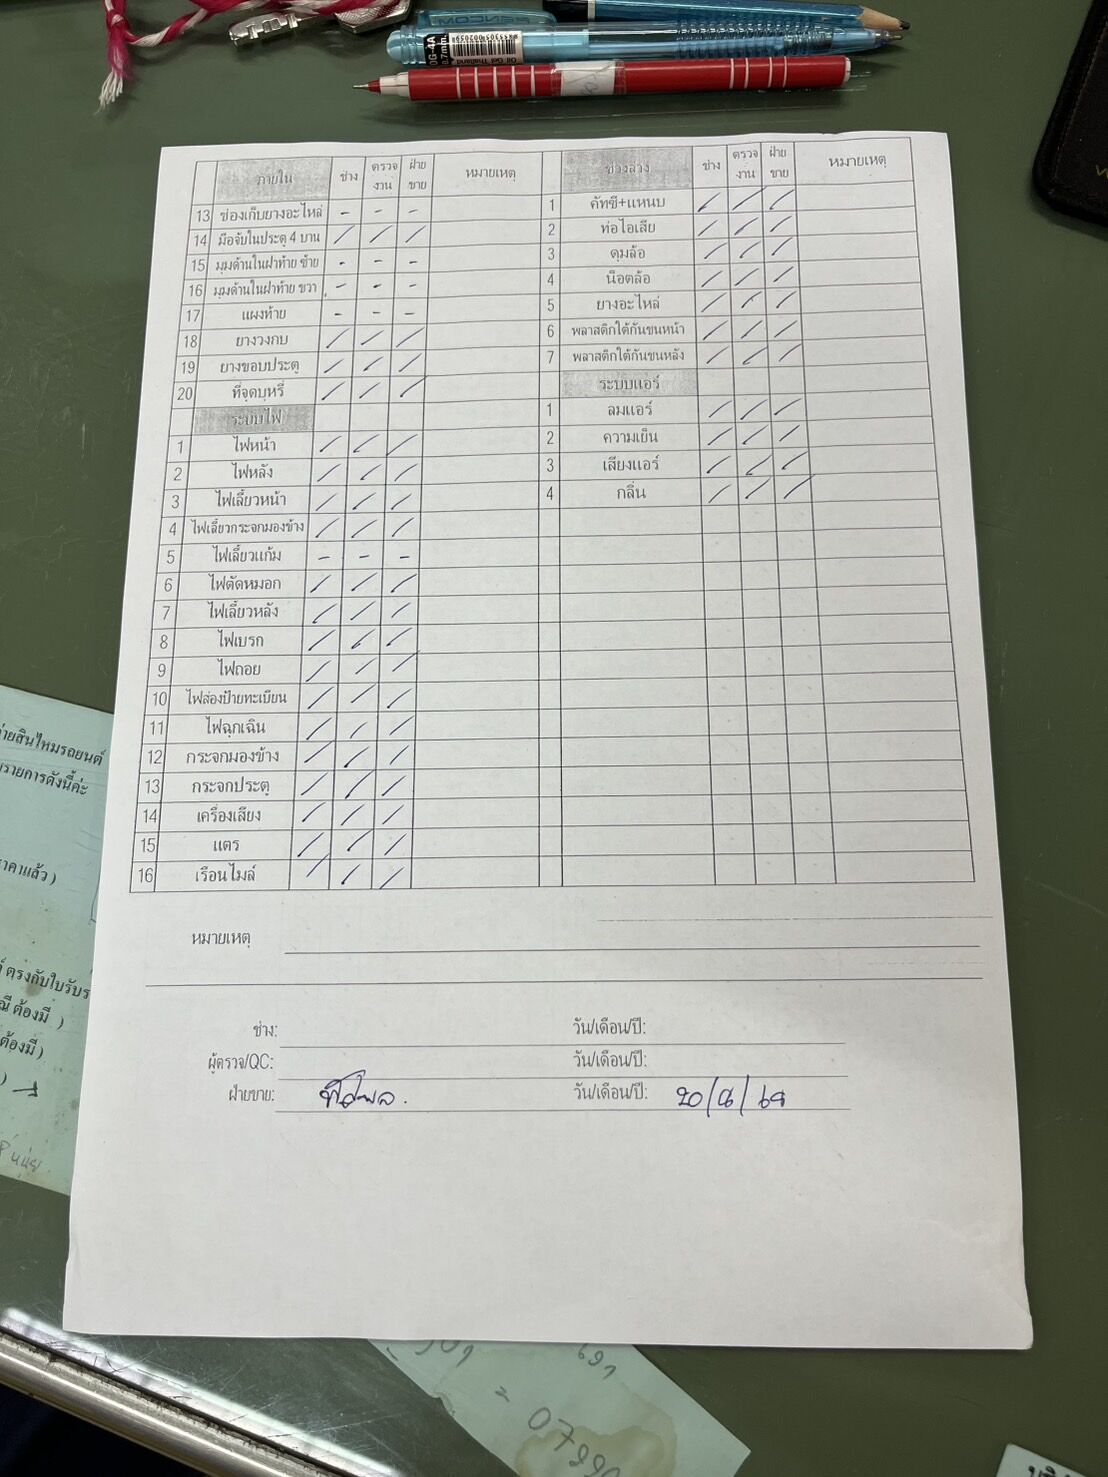 OG-4A
0.7mm.
Oil Gel Thailand
ภายใน ช่าง ตรวจงาน ฝ่ายขาย หมายเหตุ ช่วงล่าง ช่าง ตรวจงาน ฝ่ายขาย หมายเหตุ
13 ช่องเก็บยางอะไหล่ - - - 1 คัทซี+แหนบ / / /
14 มือจับในประตู 4 บาน / / / 2 ท่อไอเสีย / / /
15 มุมด้านในฝาท้าย ซ้าย - - - 3 ดุมล้อ / / /
16 มุมด้านในฝาท้าย ขวา - - - 4 น็อตล้อ / / /
17 แผงท้าย - - - 5 ยางอะไหล่ / / /
18 ยางวงกบ / / / 6 พลาสติกใต้กันชนหน้า / / /
19 ยางขอบประตู / / / 7 พลาสติกใต้กันชนหลัง / / /
20 ที่จุดบุหรี่ / / / ระบบแอร์
ระบบไฟ 1 ลมแอร์ / / /
1 ไฟหน้า / / / 2 ความเย็น / / /
2 ไฟหลัง / / / 3 เสียงแอร์ / / /
3 ไฟเลี้ยวหน้า / / / 4 กลิ่น / / /
4 ไฟเลี้ยวกระจกมองข้าง / / /
5 ไฟเลี้ยวแก้ม - - -
6 ไฟตัดหมอก / / /
7 ไฟเลี้ยวหลัง / / /
8 ไฟเบรก / / /
9 ไฟถอย / / /
10 ไฟส่องป้ายทะเบียน / / /
11 ไฟฉุกเฉิน / / /
12 กระจกมองข้าง / / /
13 กระจกประตู / / /
14 เครื่องเสียง / / /
15 แตร / / /
16 เรือนไมล์ / / /
หมายเหตุ
ช่าง: วัน/เดือน/ปี:
ผู้ตรวจ/QC: วัน/เดือน/ปี:
ฝ่ายขาย: วัน/เดือน/ปี:
่ายสินไหมรถยนต์
รายการดังนี้ค่ะ
าคาแล้ว )
ตรงกับใบรับร
ณี ต้องมี )
ต้องมี)